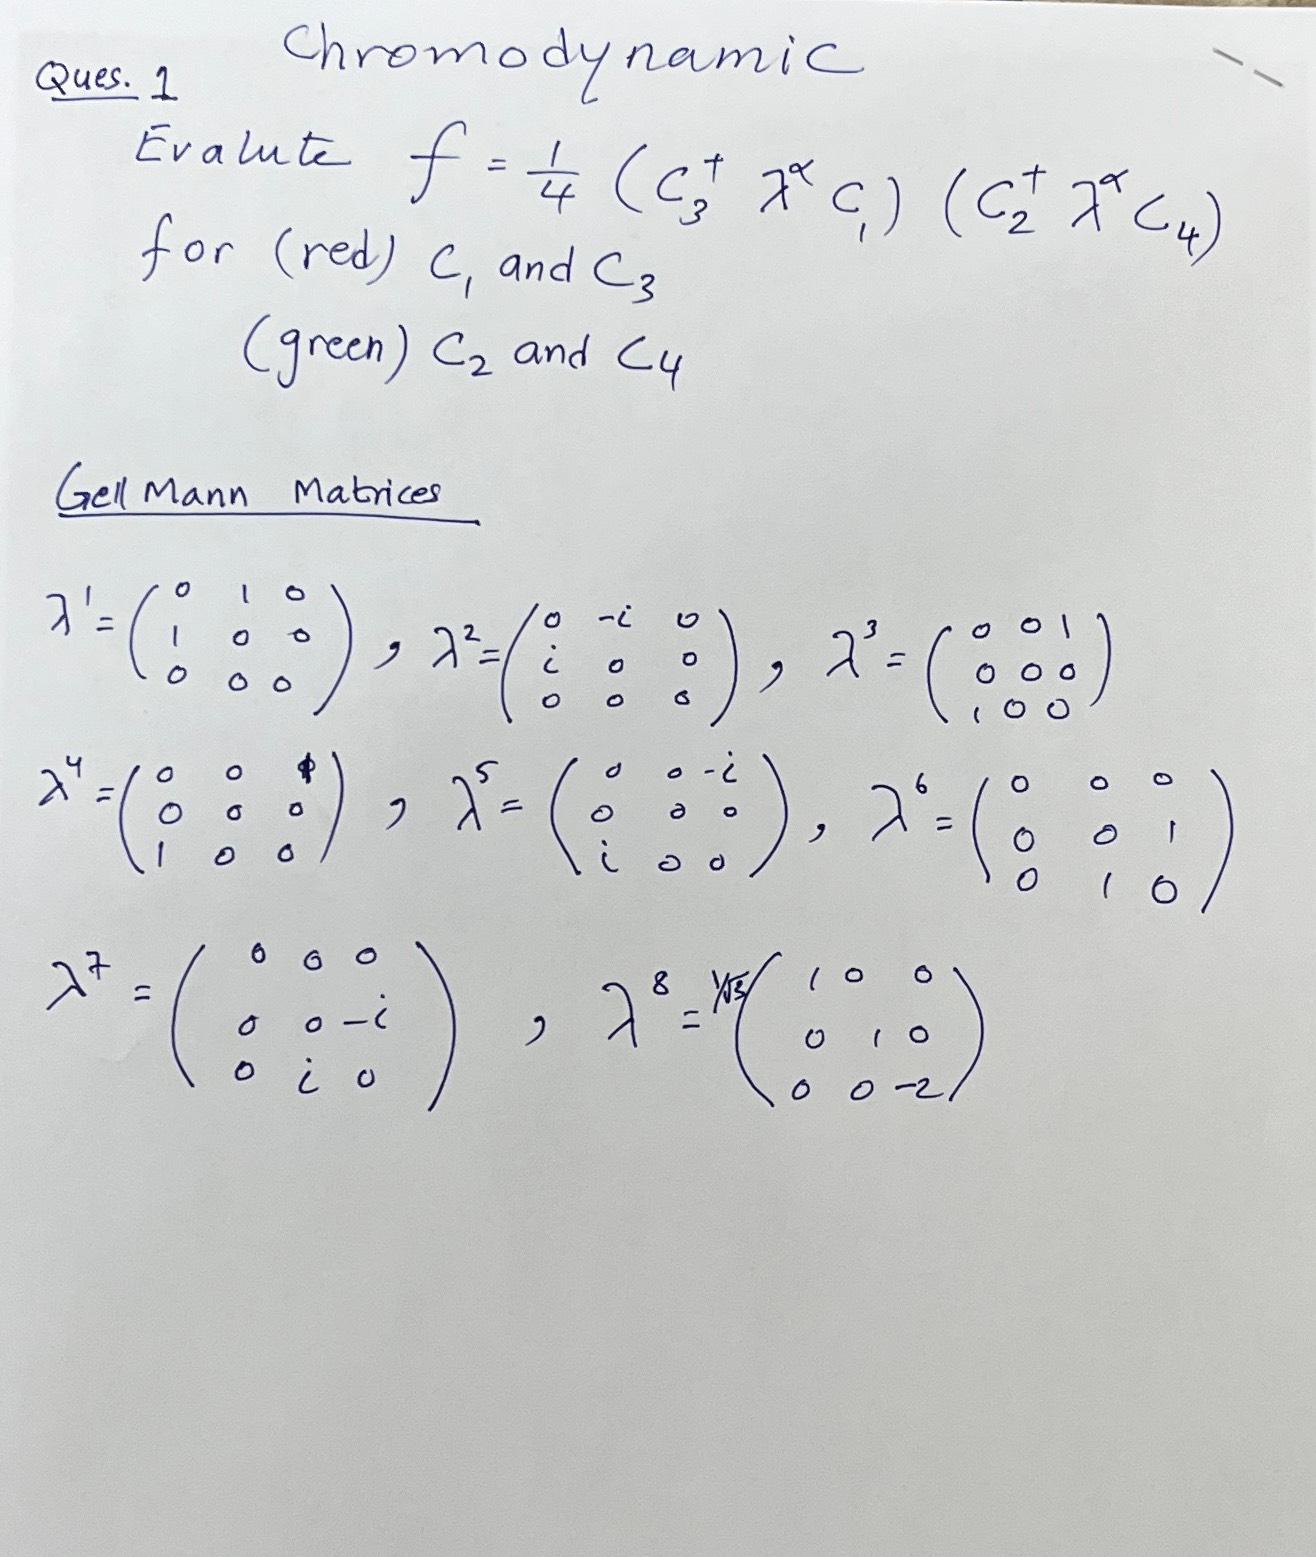 Chromodynamic
Ques. 1
Evalute f = 1/4 (C₃† λᵅ C₁) (C₂† λᵅ C₄)
for (red) C₁ and C₃
(green) C₂ and C₄
Gell Mann Matrices
λ¹ = (0 1 0; 1 0 0; 0 0 0), λ² = (0 -i 0; i 0 0; 0 0 0), λ³ = (0 0 1; 0 0 0; 1 0 0)
λ⁴ = (0 0 1; 0 0 0; 1 0 0), λ⁵ = (0 0 -i; 0 0 0; i 0 0), λ⁶ = (0 0 0; 0 0 1; 0 1 0)
λ⁷ = (0 0 0; 0 0 -i; 0 i 0), λ⁸ = 1/√3 (1 0 0; 0 1 0; 0 0 -2)